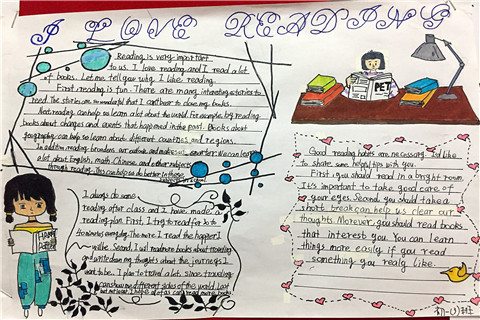 I LOVE READING
Reading is very important
to us. I love reading and I read a lot
of books. Let me tell you why I like reading.
First reading is fun. There are many interesting stories to
read. The stories are so wonderful that I can't bear to close my books.
Next, reading can help us learn a lot about the world. For example, by reading
books about changes and events that happened in the past. Books about
geography can help us learn about different countries and regions.
In addition, reading broadens our and makes us smarter. We can learn
a lot about English, math, Chinese and other subjects
through reading. This can help us do better in these
I always do some
reading after class and I have made a
reading plan. First, I try to read for
minutes every day. The more I read the happier I
will be. Second, I will read more books about traveling
and write down my thoughts about the journeys I
want to be. I plan to travel a lot, since traveling
can show me different sides of the world. Last
but not least, I hope all of us can read more books.
PET
HARRY
Good reading habits are necessary. I'd like
to share some helpful tips with you.
First, you should read in a bright room.
It's important to take good care of
your eyes. Second, you should take a
short break can help us clear our
thoughts. Moreover, you should read books
that interest you. You can learn
things more easily if you read
something you realy like.